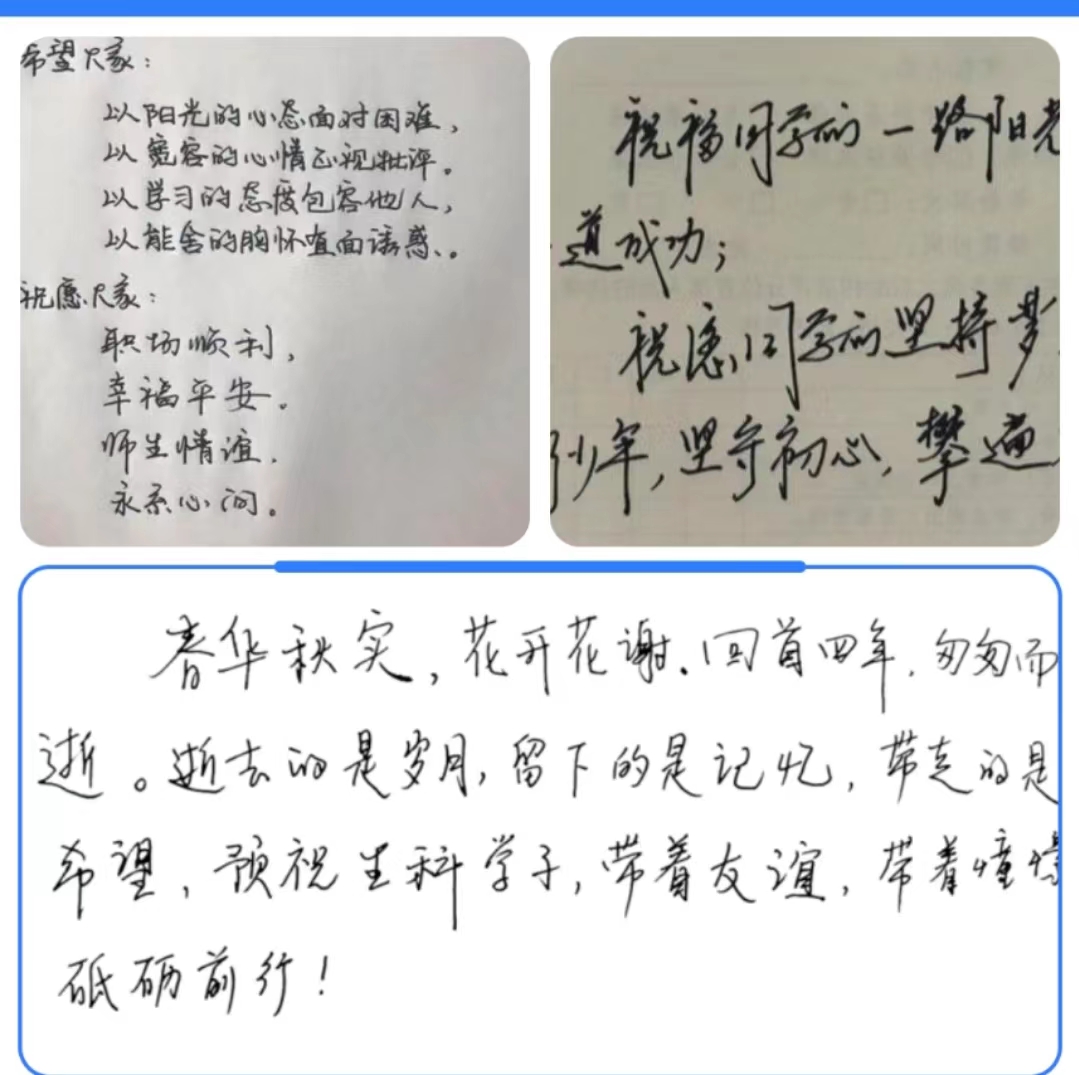 希望大家：
以阳光的心态面对困难，
以宽容的心情正视批评。
以学习的态度包容他人，
以能舍的胸怀直面诱惑。
祝愿大家：
职场顺利，
幸福平安。
师生情谊，
永系心间。
祝福同学们一路阳光
道成功；
祝愿同学们坚持梦
少年，坚守初心，攀遍
春华秋实，花开花谢.回首四年，匆匆而
逝。逝去的是岁月，留下的是记忆，带走的是
希望，预祝生科学子，带着友谊，带着憧憬
砥砺前行！